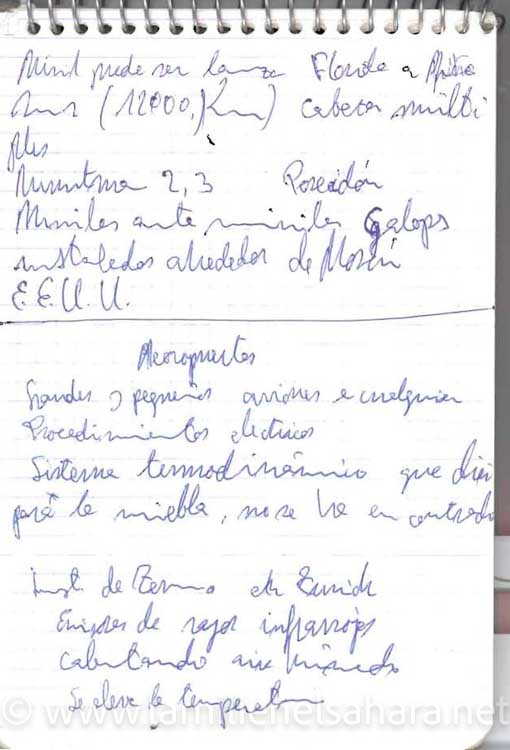 puede ser Florida a
sur (12000, Km) cabeza multi
ples
2, 3 Poseidón
Misiles ante misiles Galops
instalados alrededor de Moscú
E.E.U.U.
Aeropuertos
Grandes y pequeños aviones e cualquier
Procedimientos electricos
Sistema termodinámico que
para la niebla, no se ha encontrado
Inst. de Termo Zurich
Emisores de rayos infrarrojos
calentando aire
Se eleva la temperatura
© www.lamilienelsahara.net